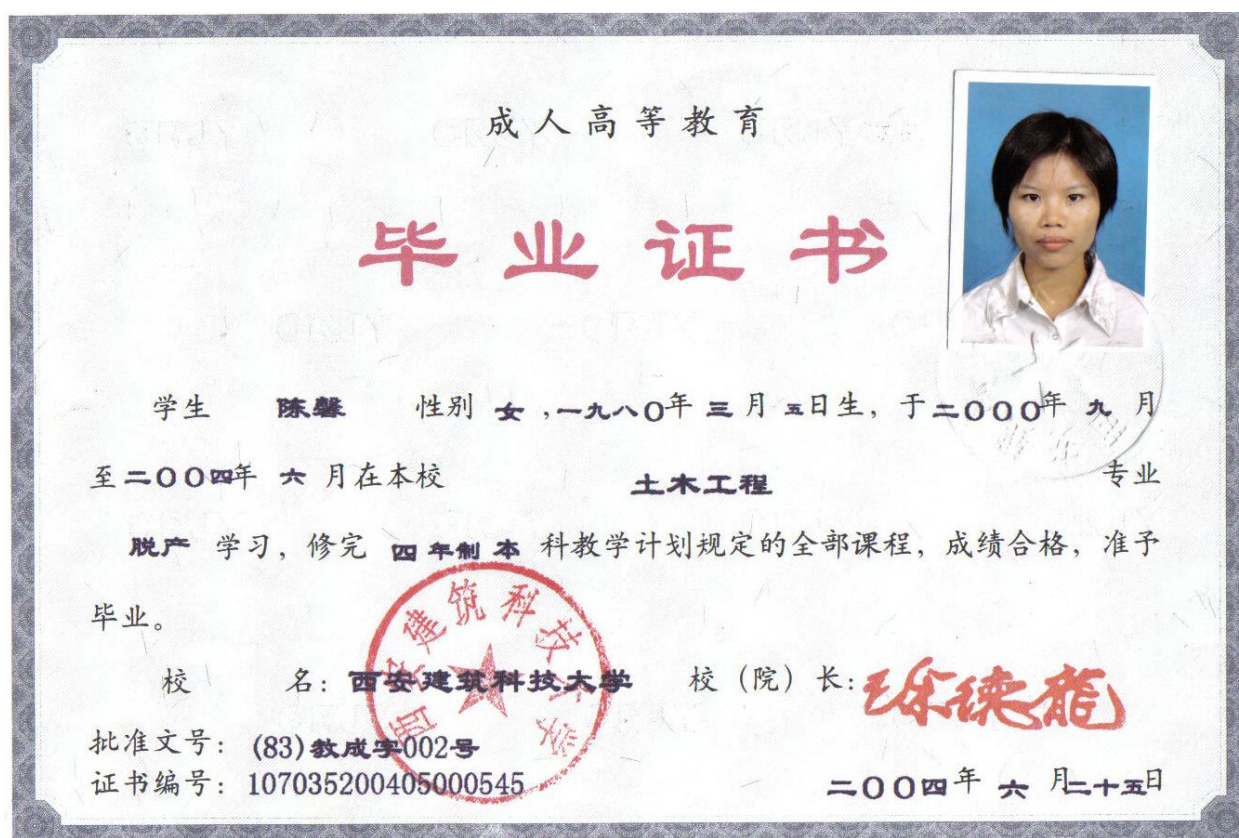 成人高等教育
毕业证书
学生 陈馨 性别 女,一九八〇年 三 月 五日生，于二〇〇〇年 九 月
至二〇〇四年 六 月在本校 土木工程 专业
脱产 学习，修完 四年制 本 科教学计划规定的全部课程，成绩合格，准予
毕业。
校 名：西安建筑科技大学 校（院）长：徐德龙
西安建筑科技大学
批准文号：(83)教成字002号
证书编号：107035200405000545
二〇〇四年 六 月二十五日